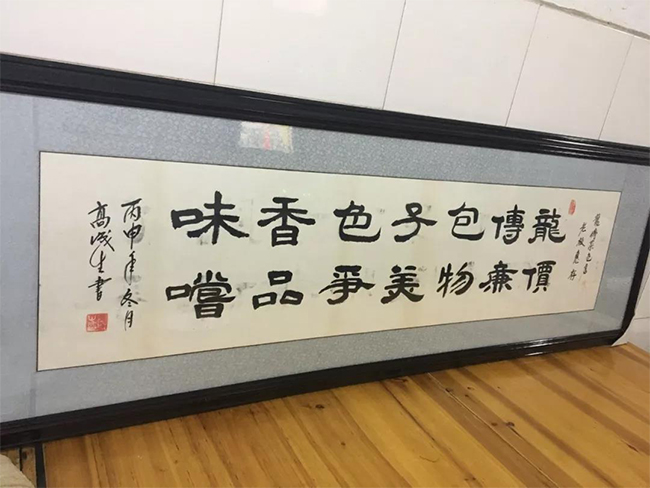 老板惠存
龍傳包子色香味
價廉物美爭品嚐
丙申年冬月
高成生書